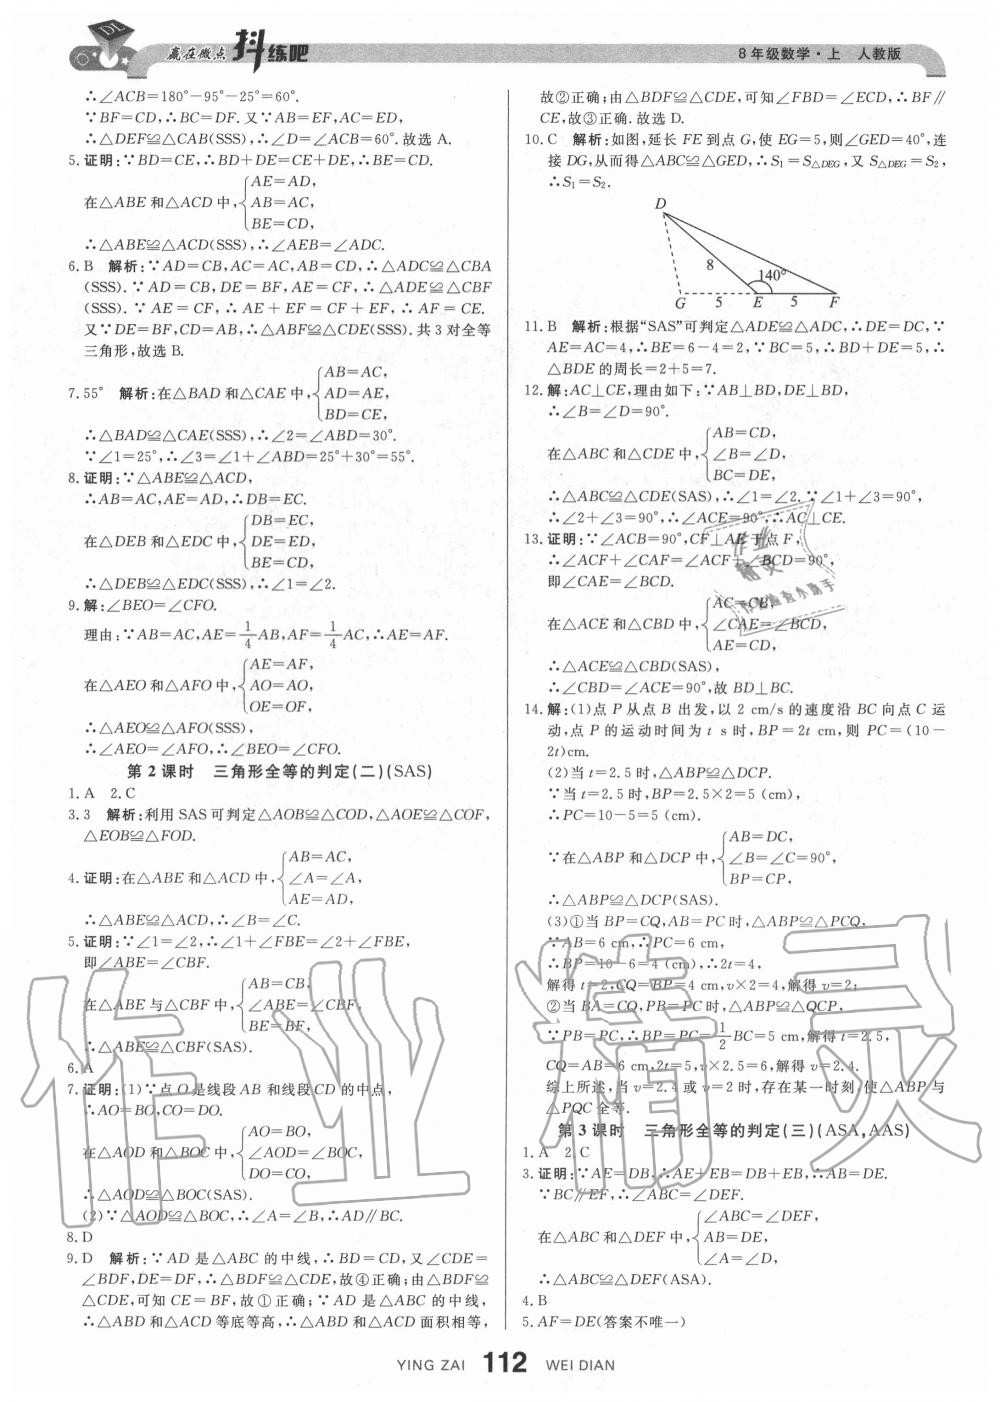 DL
赢在微点 抖练吧
8年级数学·上 人教版
∴∠ACB=180°-95°-25°=60°.
∵BF=CD,∴BC=DF. 又∵AB=EF,AC=ED,
∴△DEF≌△CAB(SSS),∴∠D=∠ACB=60°.故选A.
5.证明:∵BD=CE,∴BD+DE=CE+DE,∴BE=CD.
在△ABE和△ACD中,{AE=AD,
AB=AC,
BE=CD,
∴△ABE≌△ACD(SSS),∴∠AEB=∠ADC.
6.B 解析:∵AD=CB,AC=AC,AB=CD,∴△ADC≌△CBA
(SSS).∵AD=CB,DE=BF,AE=CF,∴△ADE≌△CBF
(SSS).∵AE=CF,∴AE+EF=CF+EF,∴AF=CE.
又∵DE=BF,CD=AB,∴△ABF≌△CDE(SSS).共3对全等
三角形,故选B.
7.55° 解析:在△BAD和△CAE中,{AB=AC,
AD=AE,
BD=CE,
∴△BAD≌△CAE(SSS),∴∠2=∠ABD=30°.
∵∠1=25°,∴∠3=∠1+∠ABD=25°+30°=55°.
8.证明:∵△ABE≌△ACD,
∴AB=AC,AE=AD,∴DB=EC.
在△DEB和△EDC中,{DB=EC,
DE=ED,
BE=CD,
∴△DEB≌△EDC(SSS),∴∠1=∠2.
9.解:∠BEO=∠CFO.
理由:∵AB=AC,AE=1/4AB,AF=1/4AC,∴AE=AF.
在△AEO和△AFO中,{AE=AF,
AO=AO,
OE=OF,
∴△AEO≌△AFO(SSS),
∴∠AEO=∠AFO,∴∠BEO=∠CFO.
第2课时 三角形全等的判定(二)(SAS)
1.A 2.C
3.3 解析:利用SAS可判定△AOB≌△COD,△AOE≌△COF,
△EOB≌△FOD.
4.证明:在△ABE和△ACD中,{AB=AC,
∠A=∠A,
AE=AD,
∴△ABE≌△ACD,∴∠B=∠C.
5.证明:∵∠1=∠2,∴∠1+∠FBE=∠2+∠FBE,
即∠ABE=∠CBF.
在△ABE与△CBF中,{AB=CB,
∠ABE=∠CBF,
BE=BF,
∴△ABE≌△CBF(SAS).
6.A
7.证明:(1)∵点O是线段AB和线段CD的中点,
∴AO=BO,CO=DO.
在△AOD和△BOC中,{AO=BO,
∠AOD=∠BOC,
DO=CO,
∴△AOD≌△BOC(SAS).
(2)∵△AOD≌△BOC,∴∠A=∠B,∴AD∥BC.
8.D
9.D 解析:∵AD是△ABC的中线,∴BD=CD,又∠CDE=
∠BDF,DE=DF,∴△BDF≌△CDE,故④正确;由△BDF≌
△CDE,可知CE=BF,故①正确;∵AD是△ABC的中线,
∴△ABD和△ACD等底等高,∴△ABD和△ACD面积相等,
故②正确;由△BDF≌△CDE,可知∠FBD=∠ECD,∴BF∥
CE,故③正确.故选D.
10.C 解析:如图,延长FE到点G,使EG=5,则∠GED=40°,连
接DG,从而得△ABC≌△GED,∴S₁=S△DEG,又S△DEG=S₂,
∴S₁=S₂.
D
8
140°
G 5 E 5 F
11.B 解析:根据“SAS”可判定△ADE≌△ADC,∴DE=DC,∵
AE=AC=4,∴BE=6-4=2,∵BC=5,∴BD+DE=5,∴
△BDE的周长=2+5=7.
12.解:AC⊥CE,理由如下:∵AB⊥BD,DE⊥BD,
∴∠B=∠D=90°.
在△ABC和△CDE中,{AB=CD,
∠B=∠D,
BC=DE,
∴△ABC≌△CDE(SAS),∴∠1=∠2.∵∠1+∠3=90°,
∴∠2+∠3=90°,∴∠ACE=90°,∴AC⊥CE.
13.证明:∵∠ACB=90°,CF⊥AE于点F,
∴∠ACF+∠CAF=∠ACF+∠BCD=90°,
即∠CAE=∠BCD.
在△ACE和△CBD中,{AC=CB,
∠CAE=∠BCD,
AE=CD,
∴△ACE≌△CBD(SAS),
∴∠CBD=∠ACE=90°,故BD⊥BC.
14.解:(1)点P从点B出发,以2 cm/s的速度沿BC向点C运
动,点P的运动时间为t s时,BP=2t cm,则PC=(10-
2t)cm.
(2)当t=2.5时,△ABP≌△DCP.
∵当t=2.5时,BP=2.5×2=5(cm),
∴PC=10-5=5(cm).
∵在△ABP和△DCP中,{AB=DC,
∠B=∠C=90°,
BP=CP,
∴△ABP≌△DCP(SAS).
(3)①当BP=CQ,AB=PC时,△ABP≌△PCQ,
∵AB=6 cm,∴PC=6 cm,
∴BP=10-6=4(cm),∴2t=4,
解得t=2,CQ=BP=4 cm,v×2=4,解得v=2;
②当BA=CQ,PB=PC时,△ABP≌△QCP,
∵PB=PC,∴BP=PC=1/2BC=5 cm,解得t=2.5,
CQ=AB=6 cm,2t=5,v×2.5=6,解得v=2.4.
综上所述,当v=2.4或v=2时,存在某一时刻,使△ABP与
△PQC全等.
第3课时 三角形全等的判定(三)(ASA,AAS)
1.A 2.C
3.证明:∵AE=DB,∴AE+EB=DB+EB,∴AB=DE.
∵BC∥EF,∴∠ABC=∠DEF.
在△ABC和△DEF中,{∠ABC=∠DEF,
AB=DE,
∠A=∠D,
∴△ABC≌△DEF(ASA).
4.B
5.AF=DE(答案不唯一)
作业精灵
作业
精灵
YING ZAI 112 WEI DIAN